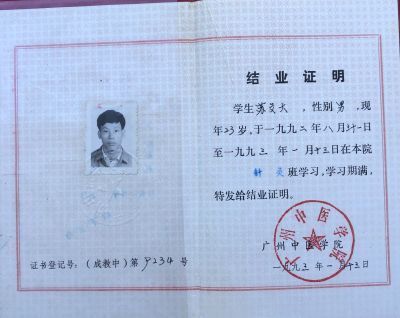 结业证明
学生 苏 大，性别 男，现
年23岁，于一九九二年八月 一日
至一九九三年一月十三日在本院
针灸班学习，学习期满，
特发给结业证明。
广州中医学院
广州中医学院
一九九三年一月十三日
证书登记号：（成教中）第9234号